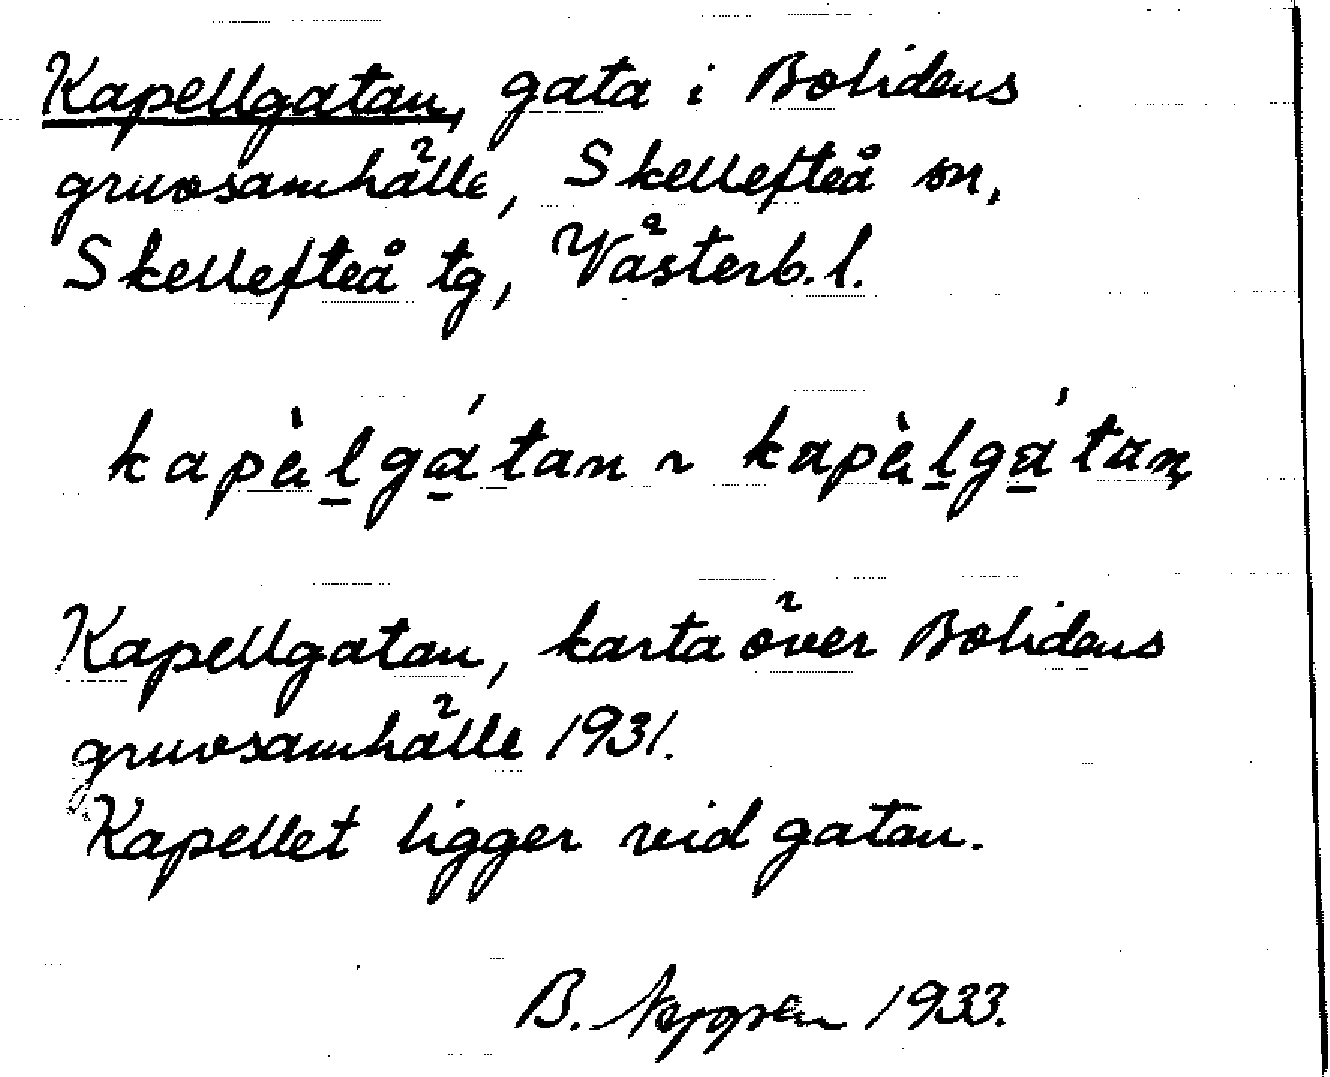 Kapellgatan, gata i Bolidens
gruvsamhälle, Skellefteå sn,
Skellefteå tg, Västerb. l.
kapàlgátan ~ kapàlgátan
Kapellgatan, karta över Bolidens
gruvsamhälle 1931.
Kapellet ligger vid gatan.
B. 1933.